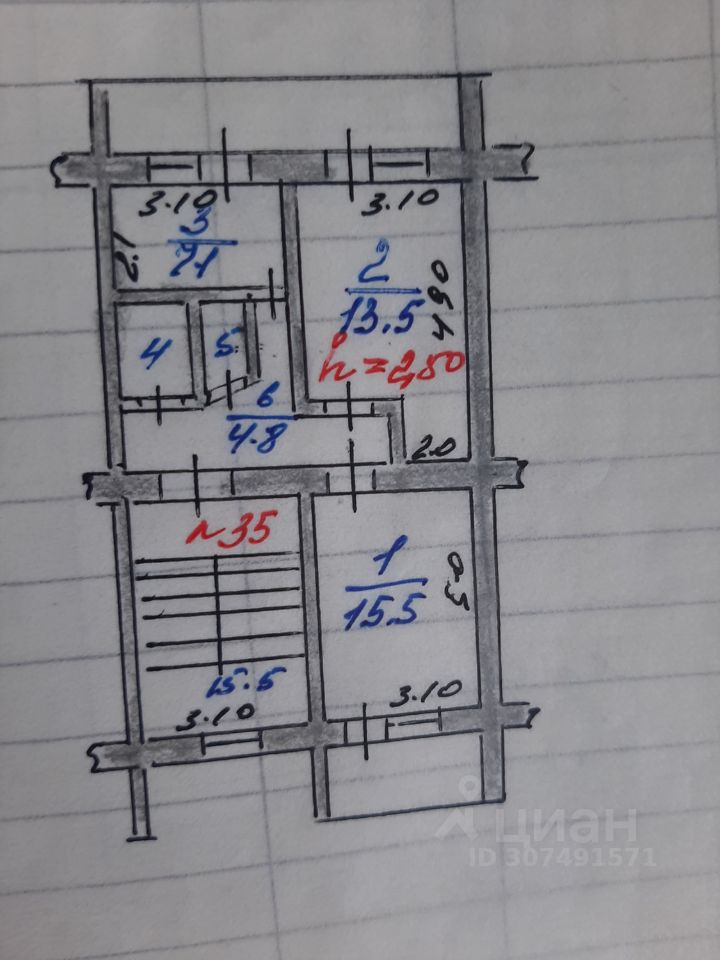 3.10
3.10
3
7.1
2.1
2
13.5
4.90
h=2,50
4
5
6
4.8
2.0
N35
1
15.5
5.0
15.5
3.10
3.10
циан
ID 307491571